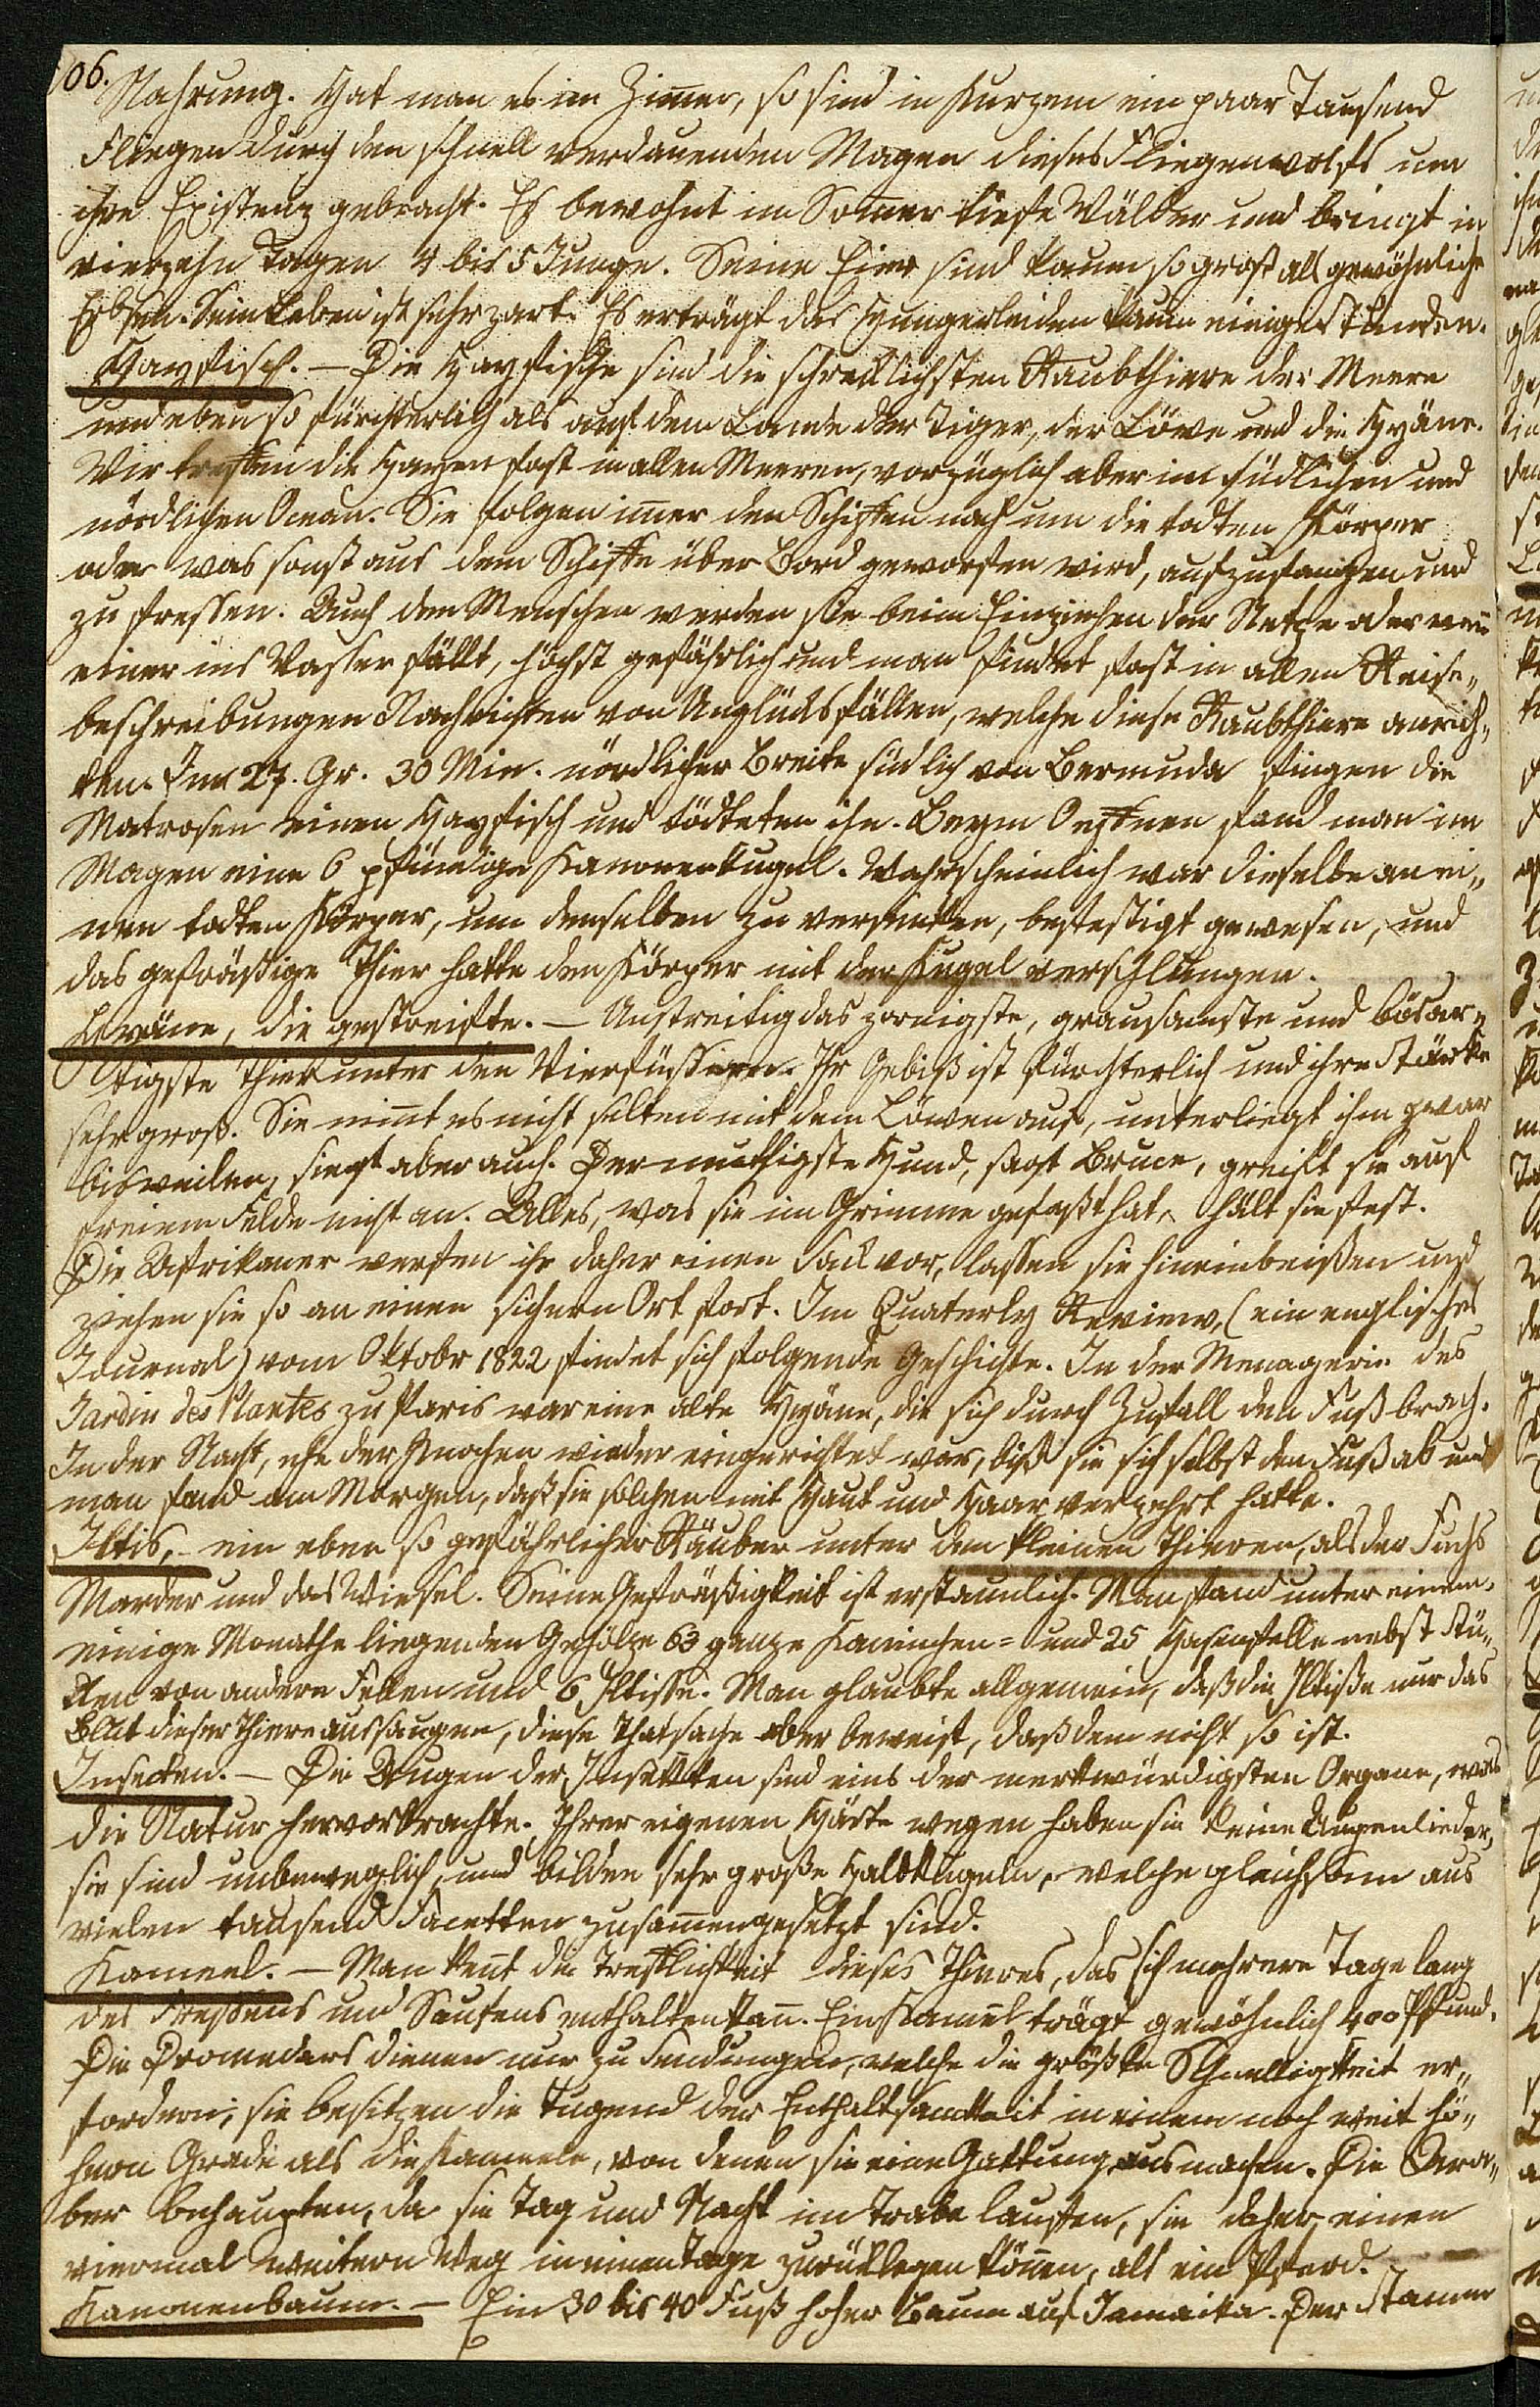 106.
Nahrung. Hat man es im Zim̅er, so sind in Kurzem ein paar Tausend
Fliegen durch den schnell verdauenden Magen dieses Fliegenwolfs um
ihre Existenz gebracht. Es bewohnt im Som̅er tiefe Wälder und bringt in
vierzehn Tagen 4 bis 5 Junge. Seine Eier sind kaum so groß als gewöhnliche
Erbsen. Sein Leben ist sehr zart. Es erträgt das Hungerleiden kaum einige Stunden.
Hayfisch. – Die Hayfische sind die schrecklichsten Raubthiere der Meere
und eben so fürchterlich als auf dem Lande der Tiger, der Löwe und die Hyäne.
Wir treffen die Hayen fast in allen Meeren, vorzüglich aber im südlichen und
nördlichen Ocean. Sie folgen im̅er den Schiffen nach um die todten Körper
oder was sonst aus dem Schiffe über Bord geworfen wird, aufzufangen und
zu fressen. Auch den Menschen werden sie beim Einziehen der Netze oder wen̅
einer ins Wasser fällt, höchst gefährlich und man findet fast in allen Reise„
beschreibungen Nachrichten von Unglücksfällen, welche diese Raubthiere anrich„
ten. Im 27. Gr. 30 Min. nördlicher Breite südlich von Bermuda fingen die
Matrosen einen Hayfisch und tödteten ihn. Beym Oeffnen fand man im
Magen eine 6 pfündige Kanonenkugel. Wahrscheinlich war dieselbe an ei„
nen todten Körper, um denselben zu versenken, befestigt gewesen, und
das gefräßige Thier hatte den Körper mit der Kugel verschlungen.
Hyäne, die gestreifte. – Unstreitig das zornigste, grausamste und bösar„
tigste Thier unter den Vierfüssigen. Ihr Gebiß ist fürchterlich und ihre Stärke
sehr groß. Sie nim̅t es nicht selten mit dem Löwen auf, unterliegt ihm zwar
bisweilen, siegt aber auch. Der muthigste Hund, sagt Bruce, greift sie auf
freiem Felde nicht an. Alles, was sie im Grimme gefaßt hat, hält sie fest.
Die Afrikaner werfen ihr daher einen Sack vor, lassen sie hineinbeißen und
ziehen sie so an einen sichern Ort fort. Im Quaterly Review, (ein englisches
Journal) vom Oktobr 1822 findet sich folgende Geschichte. In der Menagerie des
Jardin des Plantes zu Paris war eine alte Hyäne, die sich durch Zufall den Fuß brach.
In der Nacht, ehe der Knochen wieder eingerichtet war, biß sie sich selbst den Fuß ab und
man fand am Morgen, daß sie solchen mit Haut und Haar verzehrt hatte.
Iltis, – ein eben so gefährlicher Räuber unter den kleinen Thieren, als der Fuchs
Marder und das Wiesel. Seine Gefräßigkeit ist erstaunlich. Man fand unter einem
einige Monathe liegenden Gehölze 63 ganze Kaninchen= und 25 Hasenfelle nebst Stü„
cken von andern Fellen und 6 Iltisse. Man glaubte allgemein, daß die Iltisse nur das
Blut dieser Thiere aussaugen, diese Thatsache aber beweist, daß dem nicht so ist.
Insecten. – Die Augen der Insekten sind eins der merkwürdigsten Organe, was
die Natur hervorbrachte. Ihrer eigenen Härte wegen haben sie keine Augenlieder,
sie sind unbeweglich, und bilden sehr große Halbkugeln, welche gleichsam aus
vielen tausend Facetten zusam̅engesetzt sind.
Kameel. – Man ken̅t die Trefflichkeit dieses Thieres, das sich mehrere Tage lang
des Fressens und Saufens enthalten kan̅. Ein Kameel trägt gewöhnlich 400 Pfund.
Die Dromedars dienen nur zu Sendungen, welche die größte Schnelligkeit er„
fordern; sie besitzen die Tugend der Enthaltsamkeit in einem noch weit hö„
hern Grade als die Kameele, von denen sie eine Gattung ausmachen. Die Ara„
ber behaupten, da sie Tag und Nacht im Trabe lauffen, sie daher einen
viermal weitern Weg in einem Tage zurücklegen kön̅en, als ein Pferd.
Kanonenbaum. – Ein 30 bis 40 Fuß hoher Baum auf Jamaika. Der Stamm